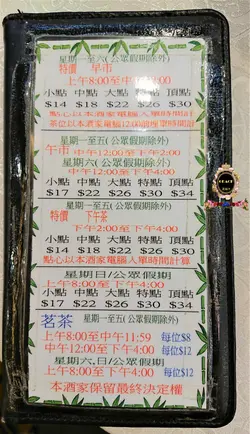 星期一至六(公眾假期除外)
特價 早市
上午8:00至中午12:00
小點 中點 大點 特點 頂點
$14 $18 $22 $26 $30
點心以本酒家電腦入單時間計
茶位以本酒家電腦12:00前埋單時間計
星期一至五(公眾假期除外)
午市 中午12:00至下午2:00
星期六(公眾假期除外)
中午12:00至下午4:00
小點 中點 大點 特點 頂點
$17 $22 $26 $30 $34
星期一至五(公眾假期除外)
特價 下午茶
下午2:00至下午4:00
小點 中點 大點 特點 頂點
$14 $18 $22 $26 $30
點心以本酒家電腦入單時間計算
星期日/公眾假期
上午8:00至下午4:00
小點 中點 大點 特點 頂點
$17 $22 $26 $30 $34
茗茶 星期一至五(公眾假期除外)
上午8:00至中午11:59 每位$8
中午12:00至下午4:00 每位$12
星期六.日/公眾假期
上午8:00至下午4:00 每位$12
本酒家保留最終決定權